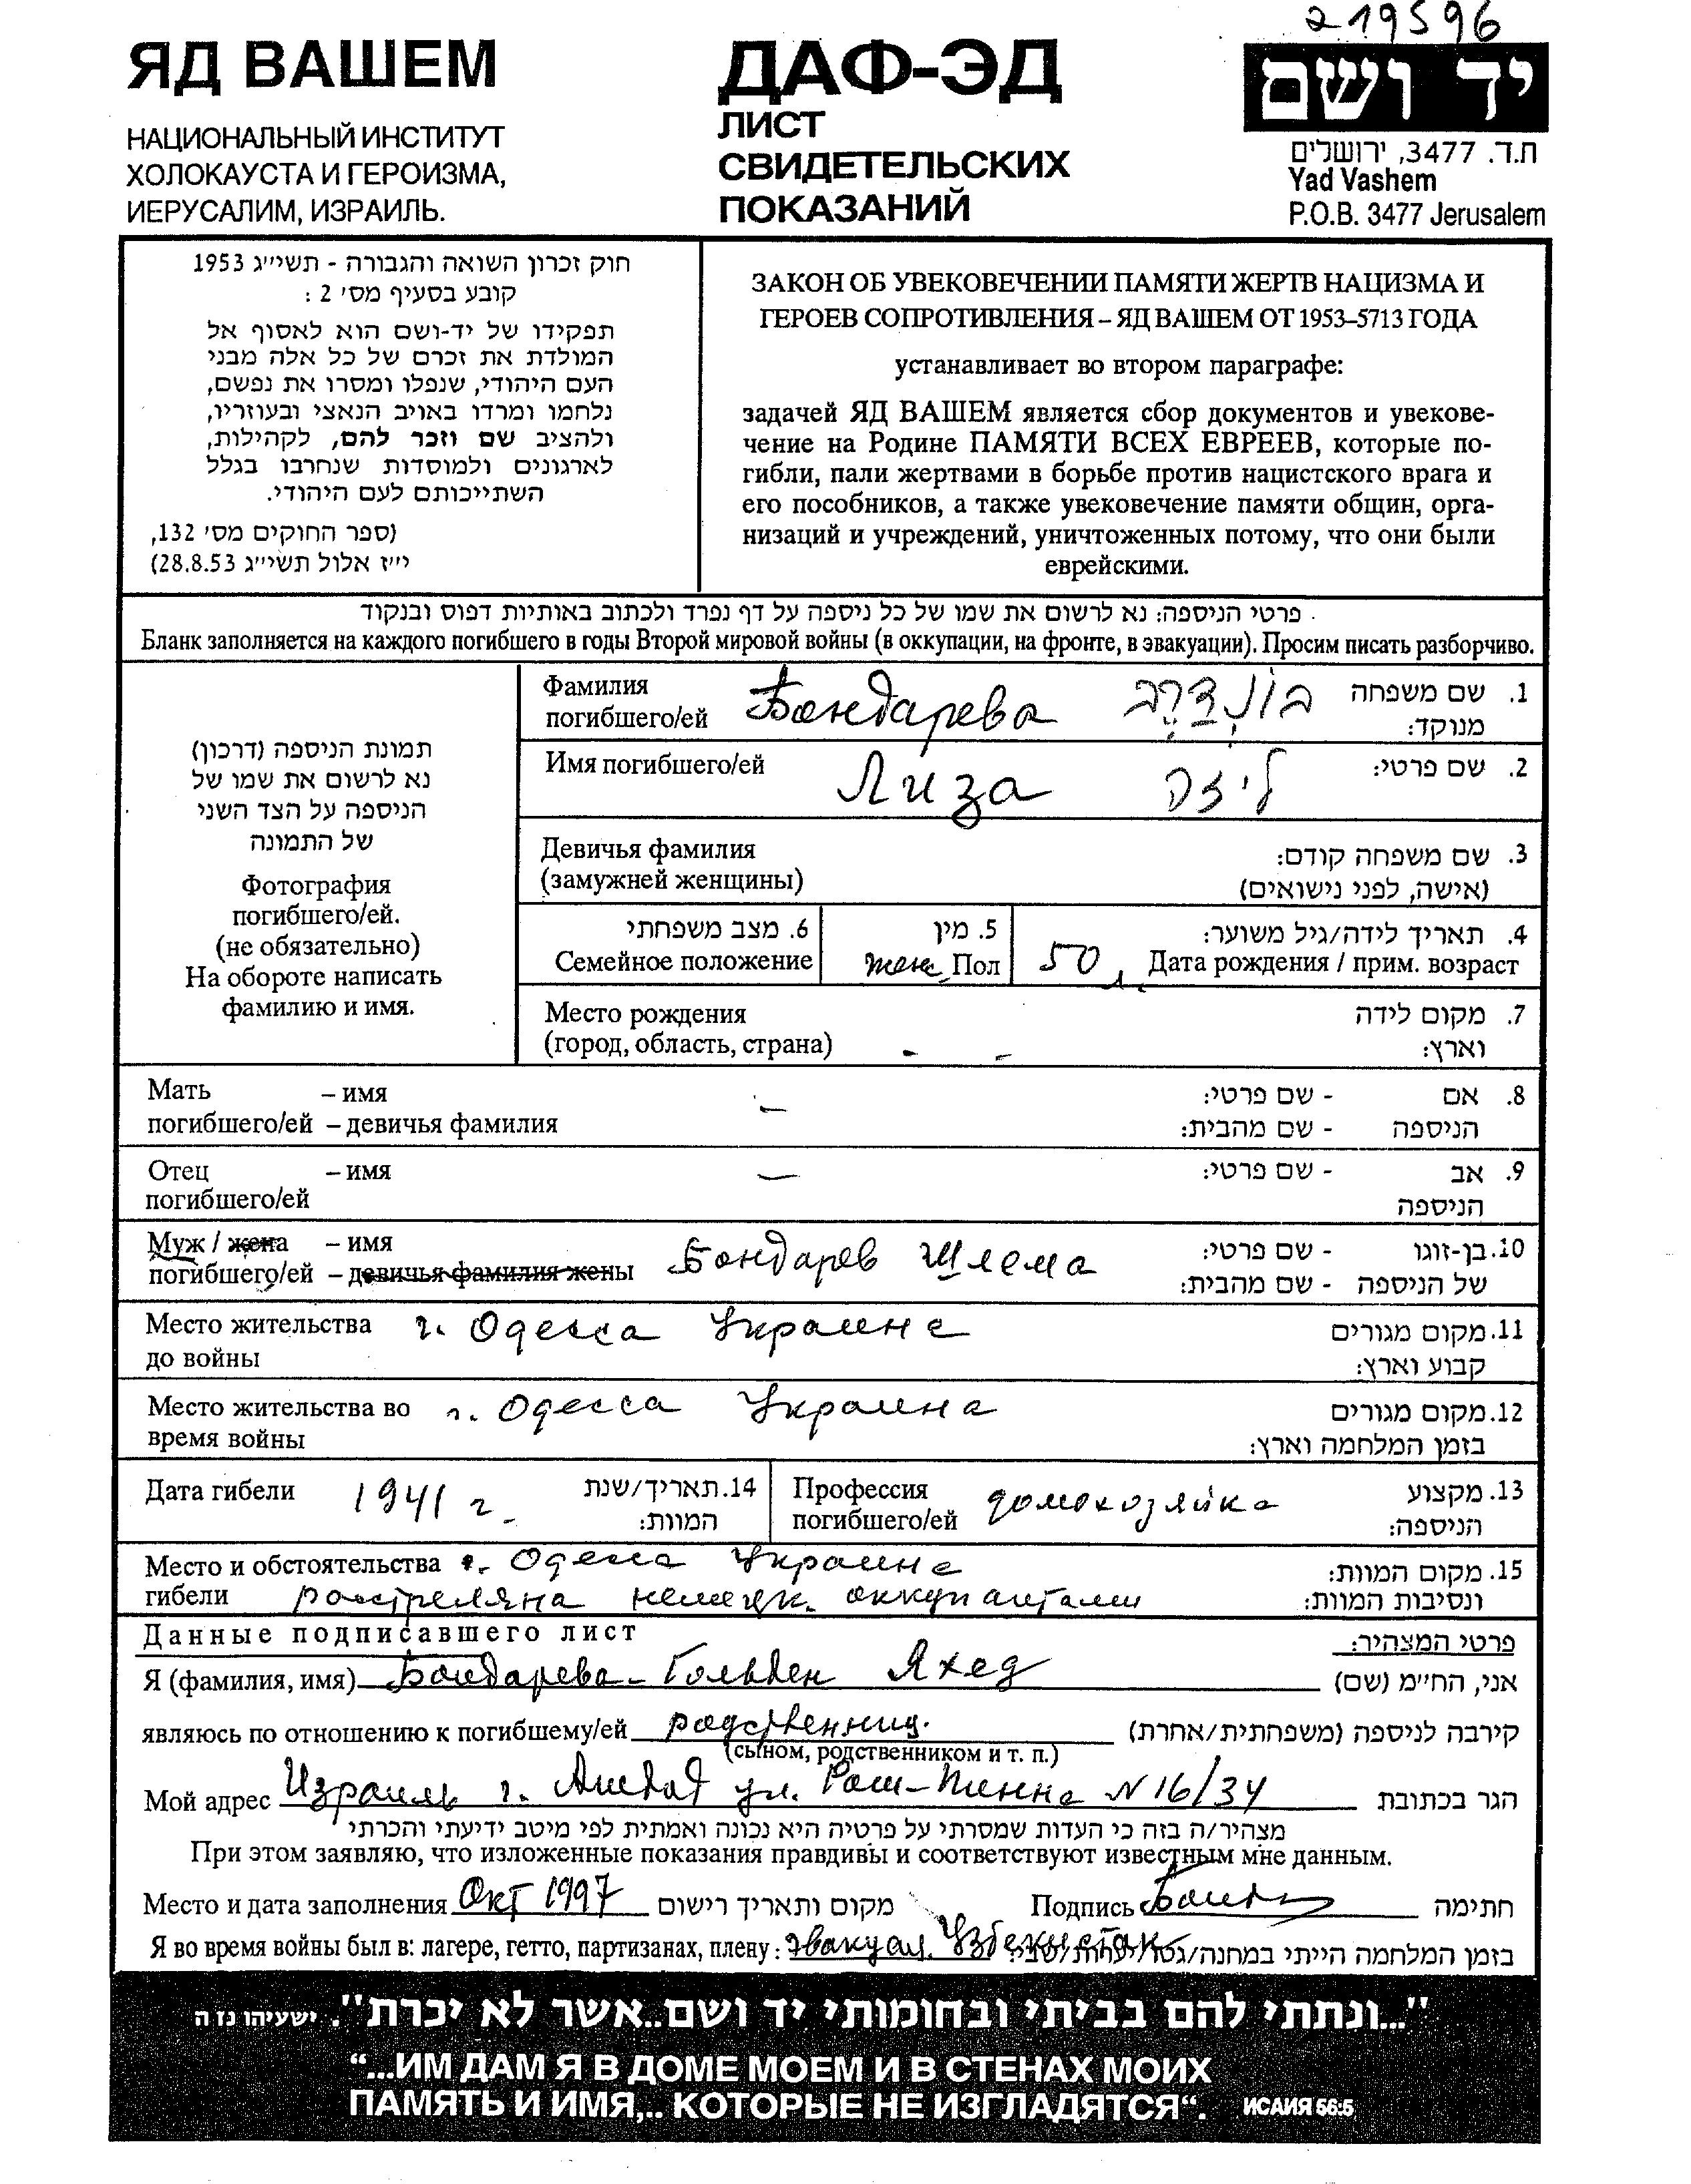 219596
ЯД ВАШЕМ
НАЦИОНАЛЬНЫЙ ИНСТИТУТ
ХОЛОКАУСТА И ГЕРОИЗМА,
ИЕРУСАЛИМ, ИЗРАИЛЬ.
ДАФ-ЭД
ЛИСТ
СВИДЕТЕЛЬСКИХ
ПОКАЗАНИЙ
יד ושם
ת.ד. 3477, ירושלים
Yad Vashem
P.O.B. 3477 Jerusalem
חוק זכרון השואה והגבורה - תשי״ג 1953
קובע בסעיף מס׳ 2 :
תפקידו של יד-ושם הוא לאסוף אל
המולדת את זכרם של כל אלה מבני
העם היהודי, שנפלו ומסרו את נפשם,
נלחמו ומרדו באויב הנאצי ובעוזריו,
ולהציב שם וזכר להם, לקהילות,
לארגונים ולמוסדות שנחרבו בגלל
השתייכותם לעם היהודי.
(ספר החוקים מס׳ 132,
י״ז אלול תשי״ג 28.8.53)
ЗАКОН ОБ УВЕКОВЕЧЕНИИ ПАМЯТИ ЖЕРТВ НАЦИЗМА И
ГЕРОЕВ СОПРОТИВЛЕНИЯ – ЯД ВАШЕМ ОТ 1953–5713 ГОДА
устанавливает во втором параграфе:
задачей ЯД ВАШЕМ является сбор документов и увекове-
чение на Родине ПАМЯТИ ВСЕХ ЕВРЕЕВ, которые по-
гибли, пали жертвами в борьбе против нацистского врага и
его пособников, а также увековечение памяти общин, орга-
низаций и учреждений, уничтоженных потому, что они были
еврейскими.
פרטי הניספה: נא לרשום את שמו של כל ניספה על דף נפרד ולכתוב באותיות דפוס ובנקוד
Бланк заполняется на каждого погибшего в годы Второй мировой войны (в оккупации, на фронте, в эвакуации). Просим писать разборчиво.
תמונת הניספה (דרכון)
נא לרשום את שמו של
הניספה על הצד השני
של התמונה
Фотография
погибшего/ей.
(не обязательно)
На обороте написать
фамилию и имя.
Фамилия Бондарева בונדרב 1. שם משפחה
погибшего/ей מנוקד:
Имя погибшего/ей Лиза ליזה 2. שם פרטי:
Девичья фамилия 3. שם משפחה קודם:
(замужней женщины) (אישה, לפני נישואים)
6. מצב משפחתי 5. מין 4. תאריך לידה/גיל משוער:
Семейное положение женс Пол 50 л. Дата рождения / прим. возраст
Место рождения 7. מקום לידה
(город, область, страна) - - וארץ:
Мать – имя – 8. אם - שם פרטי:
погибшего/ей – девичья фамилия הניספה - שם מהבית:
Отец – имя – 9. אב - שם פרטי:
погибшего/ей הניספה
Муж / жена – имя Бондарев Шлема 10. בן-זוגו - שם פרטי:
погибшего/ей – девичья фамилия жены של הניספה - שם מהבית:
Место жительства г. Одесса Украина 11. מקום מגורים
до войны קבוע וארץ:
Место жительства во г. Одесса Украина 12. מקום מגורים
время войны בזמן המלחמה וארץ:
Дата гибели 1941 г. 14. תאריך/שנת Профессия домохозяйка 13. מקצוע
המוות: погибшего/ей הניספה:
Место и обстоятельства г. Одесса Украина 15. מקום המוות:
гибели расстреляна немецк. оккупантами ונסיבות המוות:
Данные подписавшего лист פרטי המצהיר:
Я (фамилия, имя) Бондарева-Гольден Яхед אני, הח״מ (שם)
являюсь по отношению к погибшему/ей родственниц. קירבה לניספה (משפחתית/אחרת)
(сыном, родственником и т. п.)
Мой адрес Израиль г. Ашдод ул. Рош-Пинна N 16/34 הגר בכתובת
מצהיר/ה בזה כי העדות שמסרתי על פרטיה היא נכונה ואמתית לפי מיטב ידיעתי והכרתי
При этом заявляю, что изложенные показания правдивы и соответствуют известным мне данным.
Место и дата заполнения Окт 1997 מקום ותאריך רישום Подпись חתימה
Я во время войны был в: лагере, гетто, партизанах, плену: эвакуац. Узбекистан בזמן המלחמה הייתי במחנה/גטו/יערות/שבי:
"...ונתתי להם בביתי ובחומותי יד ושם..אשר לא יכרת". ישעיהו נו ה
“...ИМ ДАМ Я В ДОМЕ МОЕМ И В СТЕНАХ МОИХ
ПАМЯТЬ И ИМЯ,.. КОТОРЫЕ НЕ ИЗГЛАДЯТСЯ“. ИСАИЯ 56:5